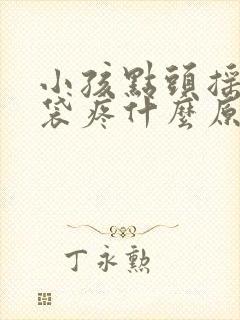 小孩點頭搖
袋疼什麼原
丁永勲